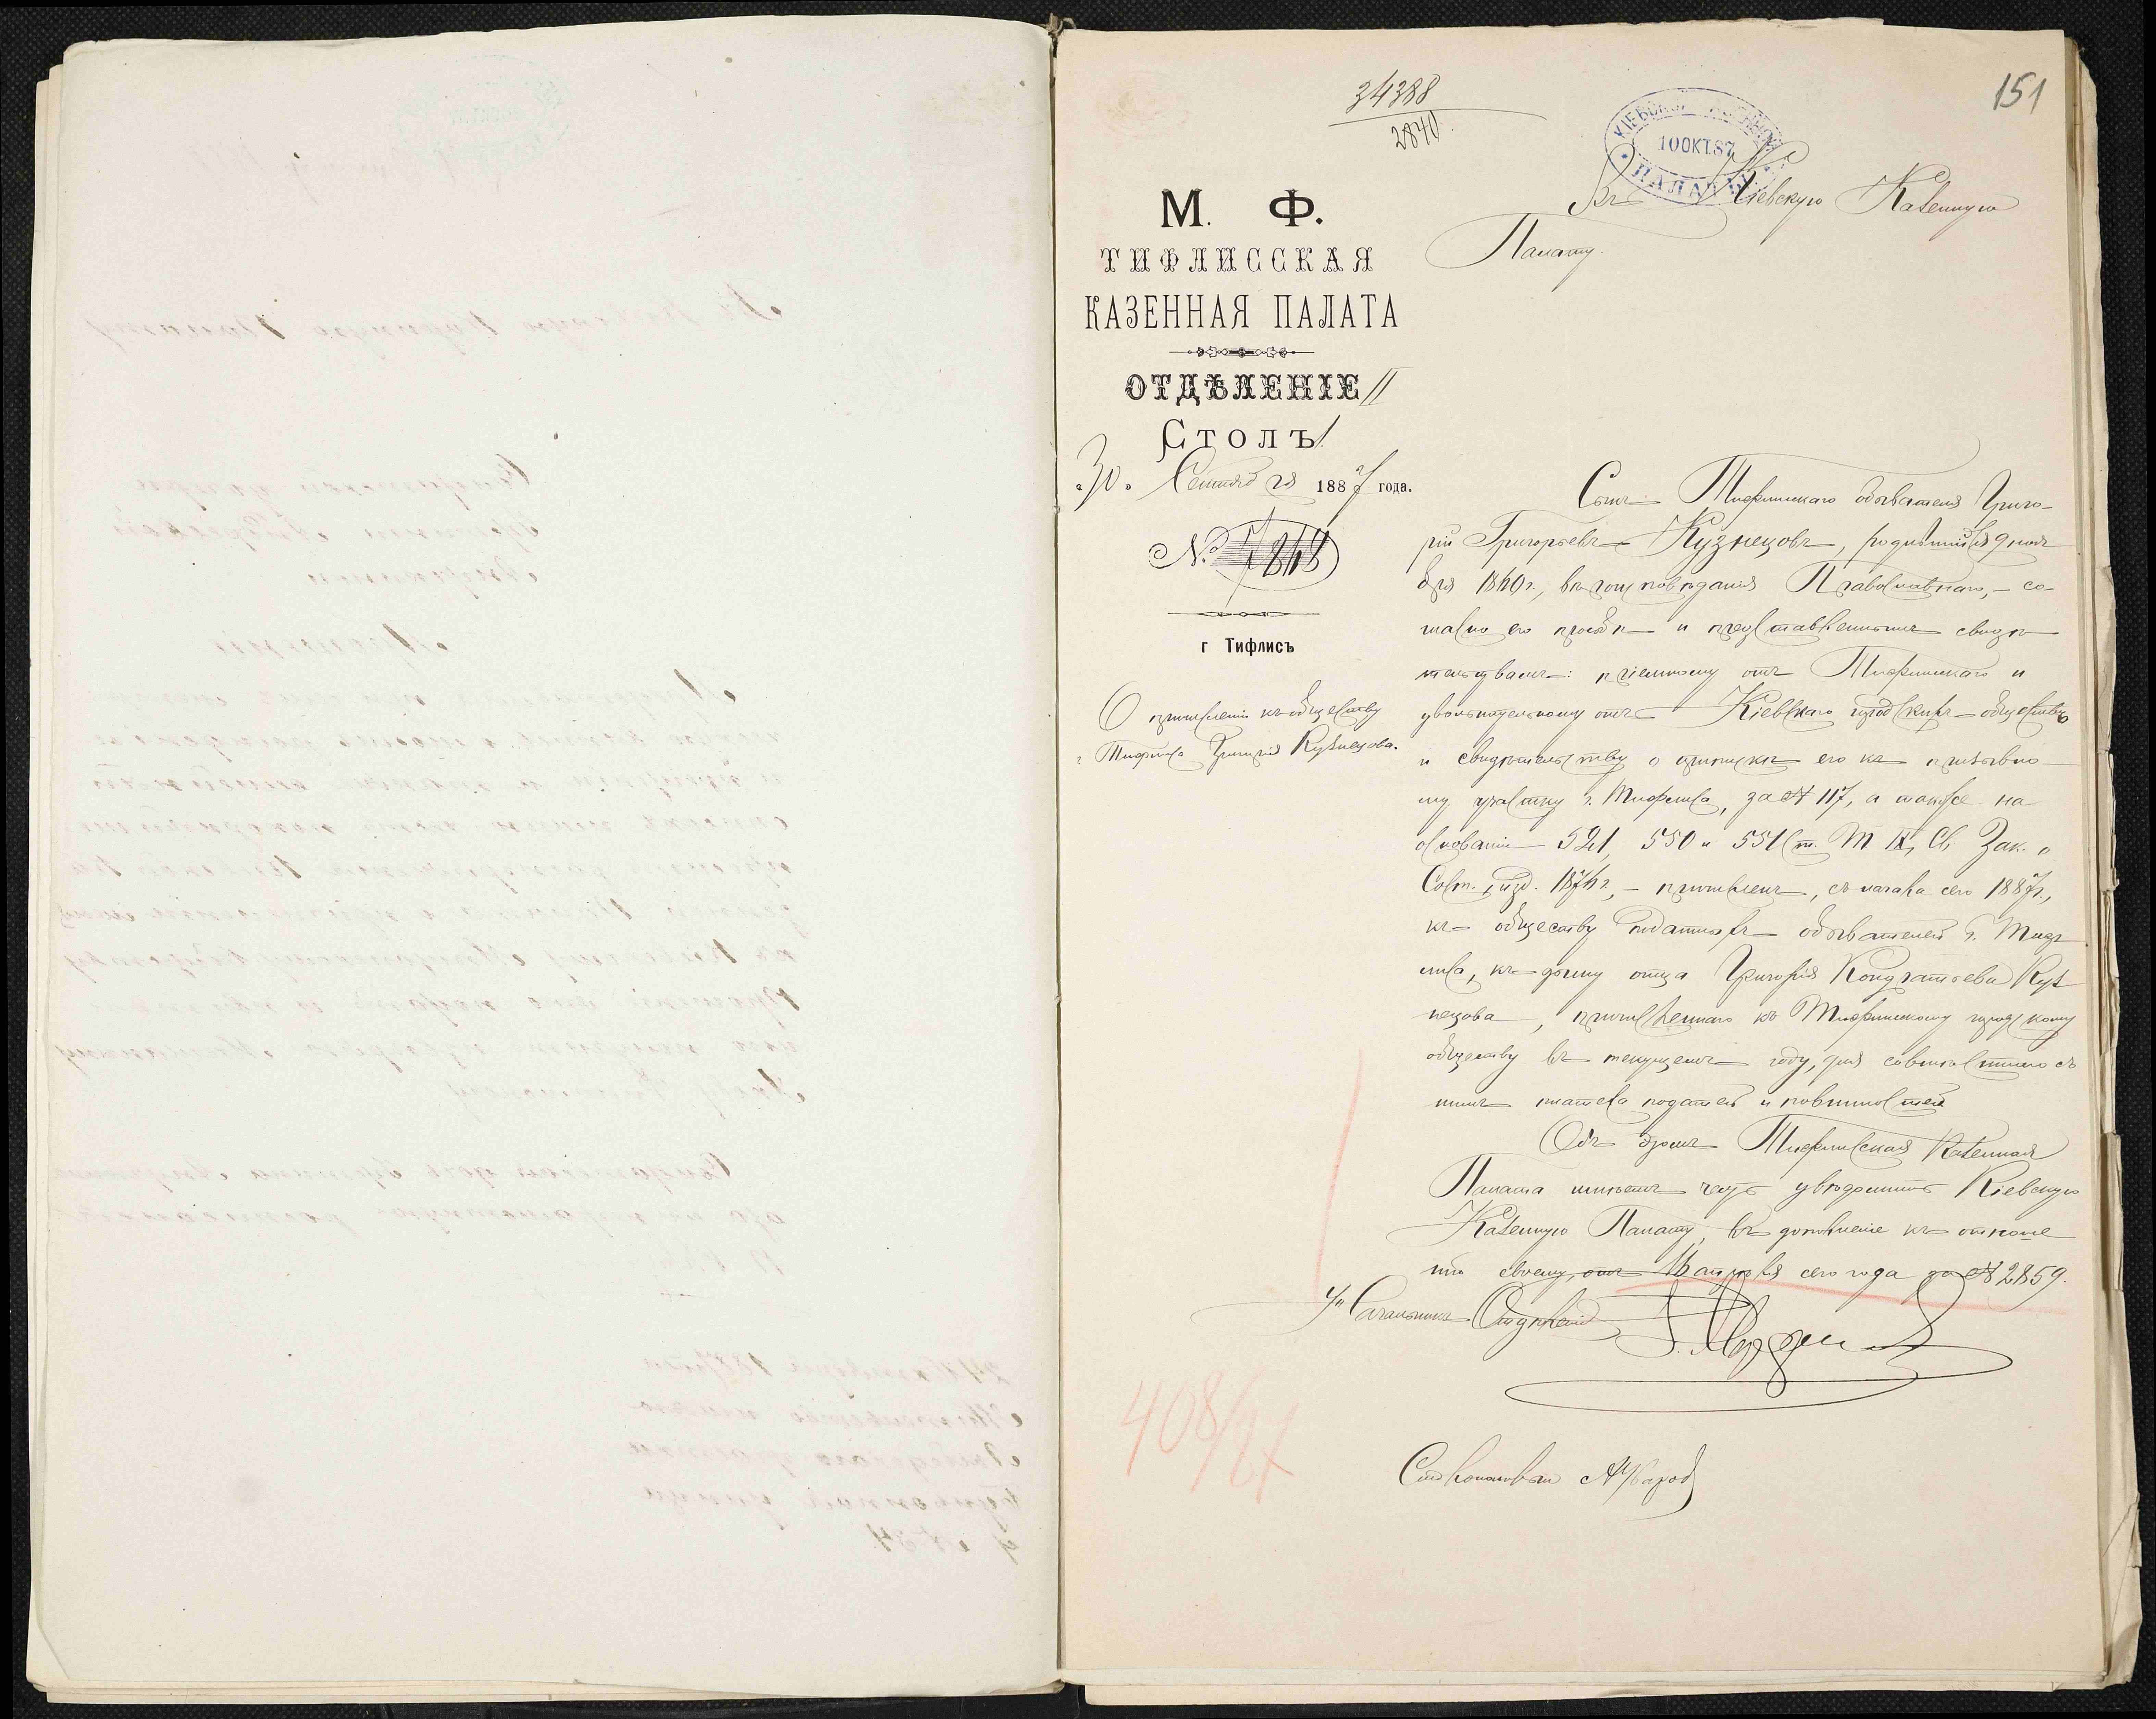 151
34388
2840
КІЕВСКОЙ КАЗЕННОЙ
10 ОКТ. 87
ПАЛАТЫ
Въ Кіевскую Казенную
Палату.
М. Ф.
ТИФЛИССКАЯ
КАЗЕННАЯ ПАЛАТА
ОТДѢЛЕНІЕ II
Столъ 1.
"30" Сентября 1887 года.
№ 7848
г Тифлисъ
О причисленіи къ обществу
г. Тифлиса Григорія Кузнецова.
Сынъ Тифлисскаго обывателя Григо-
рій Григорьевъ Кузнецовъ, родившійся 9 нояб
бря 1840г., вѣроисповѣданія Православнаго, – со-
гласно его просьбѣ и представленнымъ свидѣ
тельствамъ: пріемному отъ Тифлисскаго и
увольнительному отъ Кіевскаго городскихъ обществъ
и свидѣтельству о припискѣ его къ призывно
му участку г. Тифлиса, за № 117, а также на
основаніи 521, 550 и 551 ст. Т IX, Св. Зак. о
Сост., изд. 1876 г., – причисленъ, съ начала сего 1887г.,
къ обществу податныхъ обывателей г. Тиф
лиса, къ дыму отца Григорія Кондратьева Куз
нецова, причисленнаго къ Тифлисскому городскому
обществу въ текущемъ году, для совмѣстнаго съ
нимъ платежа податей и повинностей
Объ этомъ Тифлисская Казенная
Палата имѣетъ честь увѣдомить Кіевскую
Казенную Палату, въ дополненіе къ отноше
нію своему, отъ 16 апрѣля сего года за № 2859.
Начальникъ Отдѣленія
408/87
Столоначальникъ